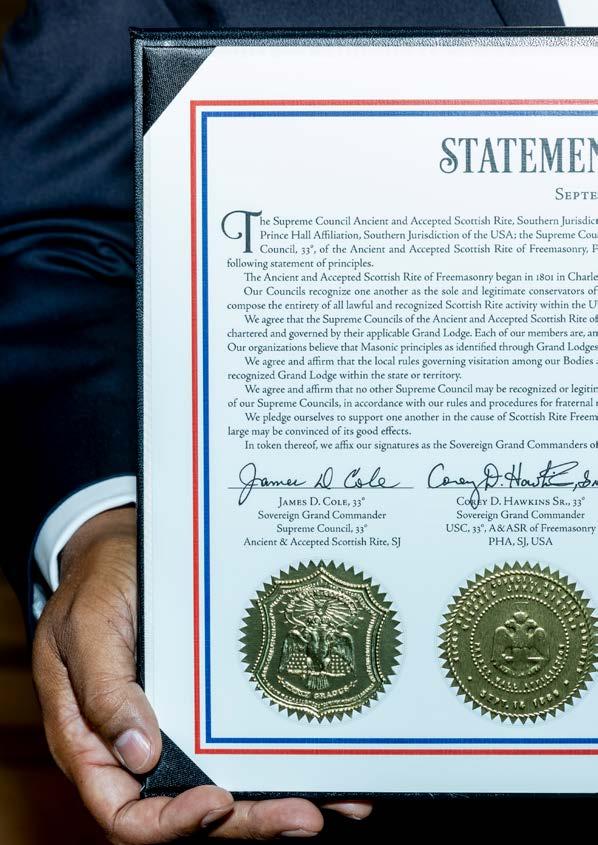 STATEMEN
SEPTE
The Supreme Council Ancient and Accepted Scottish Rite, Southern Jurisdic
Prince Hall Affiliation, Southern Jurisdiction of the USA; the Supreme Cou
Council, 33°, of the Ancient and Accepted Scottish Rite of Freemasonry, P
following statement of principles.
The Ancient and Accepted Scottish Rite of Freemasonry began in 1801 in Charle
Our Councils recognize one another as the sole and legitimate conservators of
compose the entirety of all lawful and recognized Scottish Rite activity within the U
We agree that the Supreme Councils of the Ancient and Accepted Scottish Rite of
chartered and governed by their applicable Grand Lodge. Each of our members are, an
Our organizations believe that Masonic principles as identified through Grand Lodges
We agree and affirm that the local rules governing visitation among our Bodies
recognized Grand Lodge within the state or territory.
We agree and affirm that no other Supreme Council may be recognized or legitim
of our Supreme Councils, in accordance with our rules and procedures for fraternal
We pledge ourselves to support one another in the cause of Scottish Rite Freem
large may be convinced of its good effects.
In token thereof, we affix our signatures as the Sovereign Grand Commanders of
James D Cole Corey D. Hawkins, Sr
JAMES D. COLE, 33° COREY D. HAWKINS SR., 33°
Sovereign Grand Commander Sovereign Grand Commander
Supreme Council, 33° USC, 33°, A&ASR of Freemasonry
Ancient & Accepted Scottish Rite, SJ PHA, SJ, USA